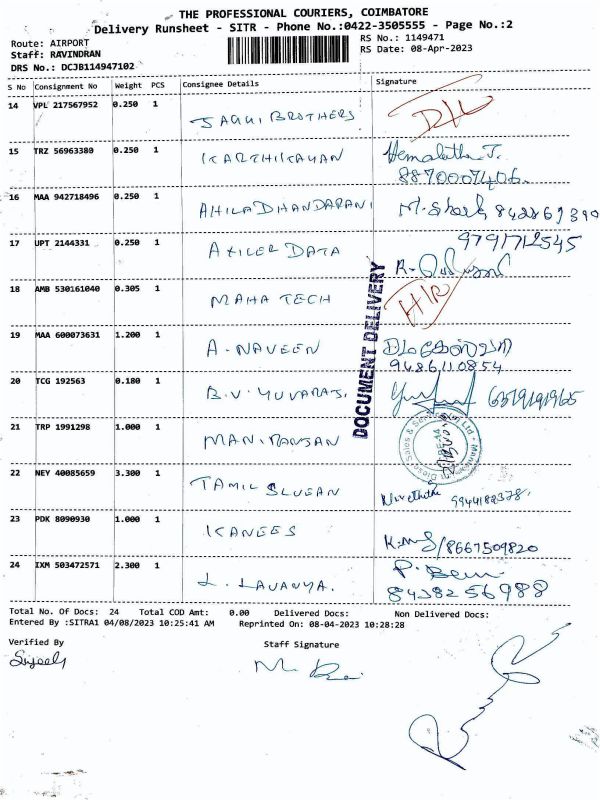 THE PROFESSIONAL COURIERS, COIMBATORE
Delivery Runsheet - SITR - Phone No.:0422-3505555 - Page No.:2
Route: AIRPORT RS No.: 1149471
Staff: RAVINDRAN RS Date: 08-Apr-2023
DRS No.: DCJB114947102
S No Consignment No Weight PCS Consignee Details Signature
14 VPL 217567952 0.250 1 JAGUI BROTHERS
15 TRZ 56963380 0.250 1 KARTHIKAYAN Hemalatha J.
8870007406
16 MAA 942718496 0.250 1 AHILADHANDARANI
9791712545
17 UPT 2144331 0.250 1 AXILER DATA R.
18 AMB 530161040 0.305 1 MAHA TECH
DOCUMENT DELIVERY
19 MAA 600073631 1.200 1 A. NAVEEN
9486110854
20 TCG 192563 0.180 1 B.V. YUVARAJ. 6379191965
21 TRP 1991298 1.000 1 MANIRANJAN
22 NEY 40085659 3.300 1 TAMIL SLVEAN
Nivethitha 9944182378
23 PDK 8090930 1.000 1 KANEES
8667509820
24 IXM 503472571 2.300 1 L. LAVANYA. P.
8438256988
Total No. Of Docs: 24 Total COD Amt: 0.00 Delivered Docs: Non Delivered Docs:
Entered By :SITRA1 04/08/2023 10:25:41 AM Reprinted On: 08-04-2023 10:28:28
Verified By Staff Signature